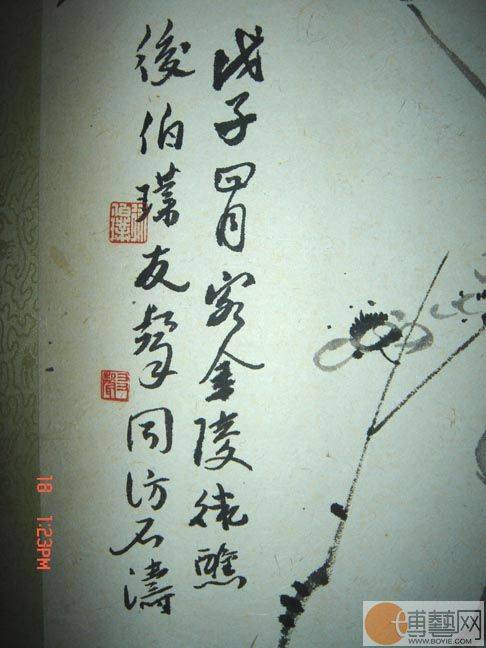 戊子四月客金陵醮
後伯璞友聲同仿石濤
18 1:23PM
博藝网
WWW.BOYIE.COM